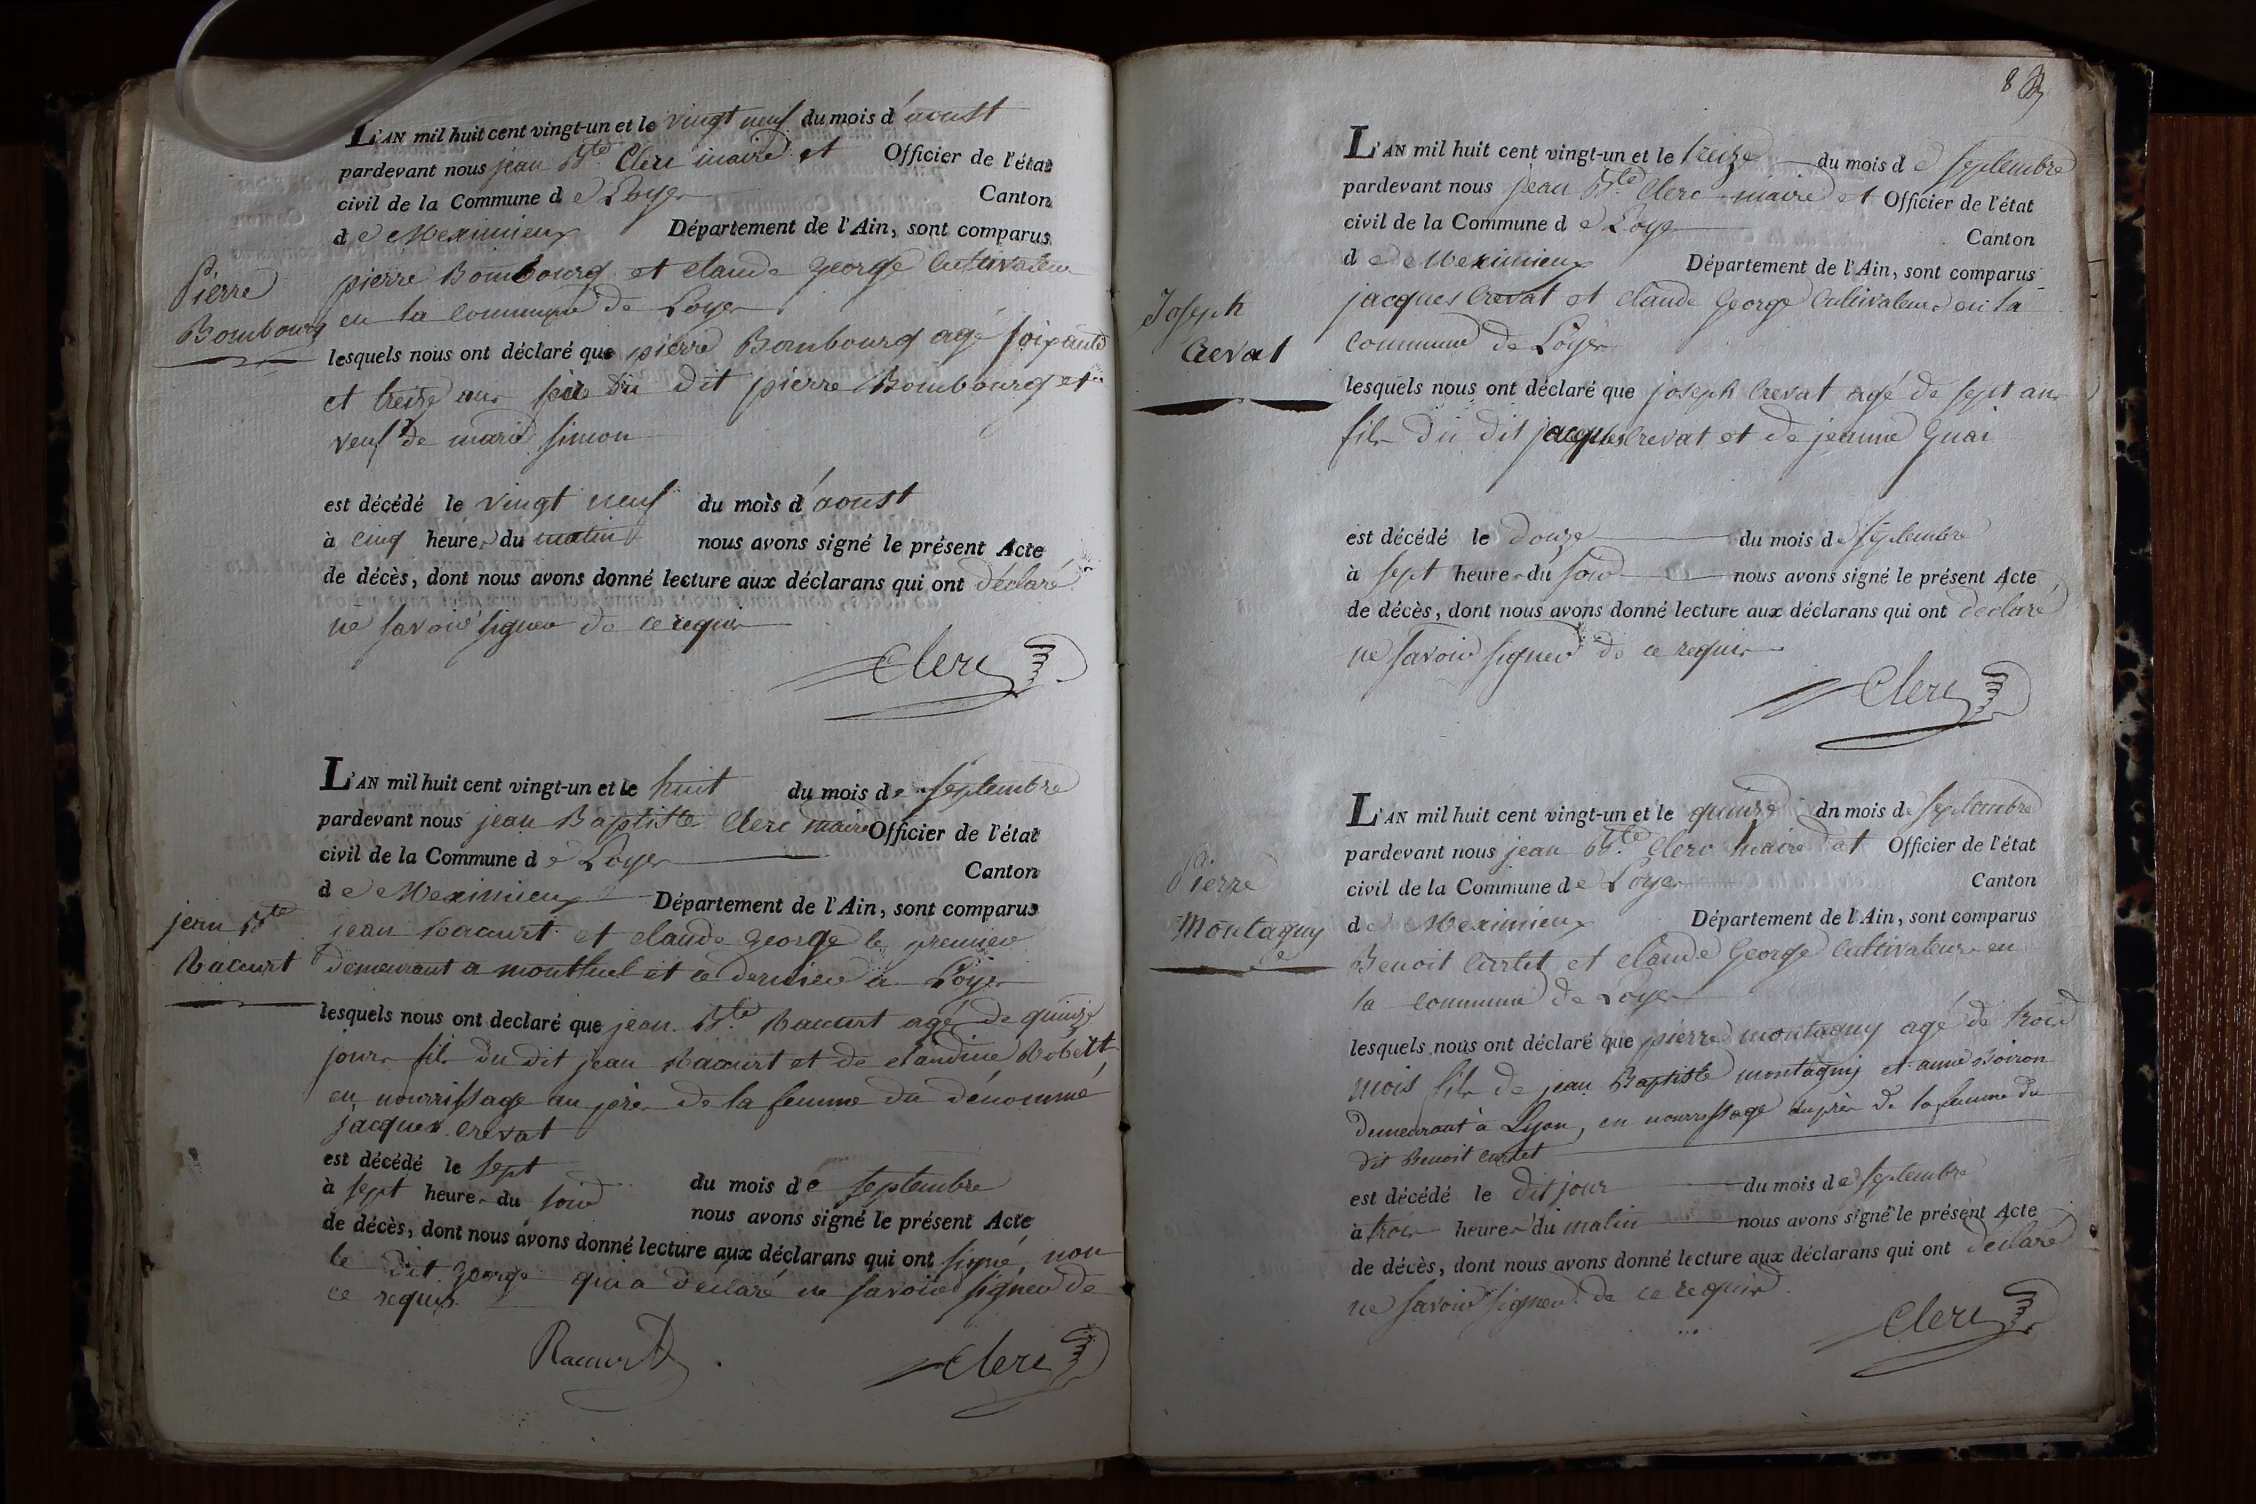 L'AN mil huit cent vingt-un et le vingt neuf du mois d'aoust
pardevant nous jean Bte Clerc maire et Officier de l'état
civil de la Commune de Loyes Canton
de Meximieux Département de l'Ain, sont comparus
pierre Bombourg et claude george Cultivateur
en la commune de Loyes
Pierre
Bombourg
lesquels nous ont déclaré que pierre Bombourg agé soixante
et treize ans père du dit pierre Bombourg et
veuf de marie simon
est décédé le vingt neuf du mois d'aoust
à cinq heures du matin nous avons signé le présent Acte
de décès, dont nous avons donné lecture aux déclarans qui ont déclaré
ne savoir signer de ce requis
Clerc
L'AN mil huit cent vingt-un et le huit du mois de septembre
pardevant nous jean Baptiste Clerc maire Officier de l'état
civil de la Commune de Loyes Canton
de Meximieux Département de l'Ain, sont comparus
jean Bte
Racurt
jean Racurt et claude george le premier
demeurant a montluel et ce dernier a Loyes
lesquels nous ont declaré que jean Bte Racurt agé de quinze
jours fils du dit jean Racurt et de claudine Robert
en nourrissage au près de la femme du dénommé
jacques crevat
est décédé le sept du mois de septembre
à sept heures du soir nous avons signé le présent Acte
de décès, dont nous avons donné lecture aux déclarans qui ont signé, non
le dit george qui a déclaré ne savoir signer de
ce requis
Racurt
Clerc
8
L'AN mil huit cent vingt-un et le treize du mois de septembre
pardevant nous jean Bte Clerc maire et Officier de l'état
civil de la Commune de Loyes Canton
de Meximieux Département de l'Ain, sont comparus
Joseph
Crevat
jacques Crevat et claude George Cultivateurs en la
commune de Loyes
lesquels nous ont déclaré que joseph Crevat agé de sept ans
fils du dit jacques Crevat et de jeanne Guai
est décédé le douze du mois de septembre
à sept heures du soir nous avons signé le présent Acte
de décès, dont nous avons donné lecture aux déclarans qui ont déclaré
ne savoir signer de ce requis
Clerc
L'AN mil huit cent vingt-un et le quinze dn mois de septembre
pardevant nous jean Bte Clerc maire et Officier de l'état
civil de la Commune de Loyes Canton
de Meximieux Département de l'Ain, sont comparus
Pierre
Montagny
Benoit Curtet et claude George Cultivateurs en
la commune de Loyes
lesquels nous ont déclaré que pierre montagny agé de trois
mois fils de jean Baptiste montagny et anne Boiron
demeurant à Lyon, en nourrissage auprès de la femme du
dit Benoit curtet
est décédé le dit jour du mois de septembre
à trois heures du matin nous avons signé le présent Acte
de décès, dont nous avons donné lecture aux déclarans qui ont déclaré
ne savoir signer de ce requis
Clerc